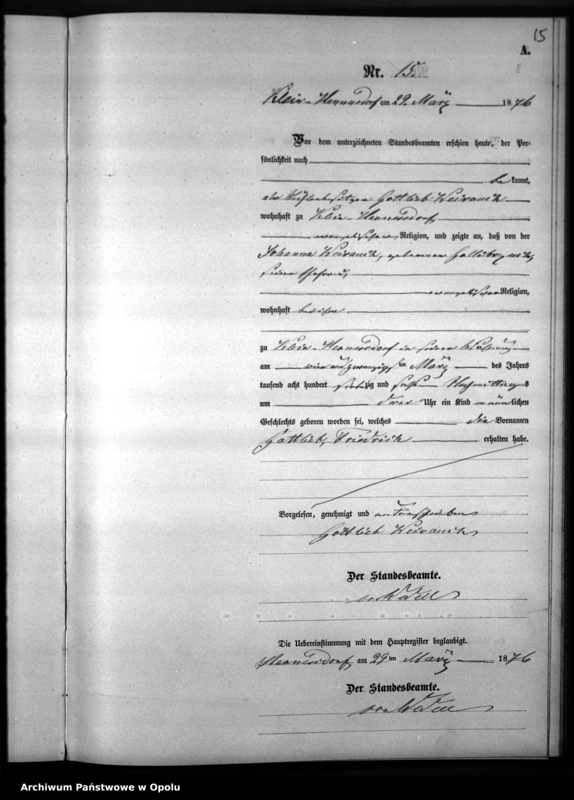 15
A.
Nr. 15.
Klein-Hennersdorf am 29. März 1876
Vor dem unterzeichneten Standesbeamten erschien heute, der Per-
sönlichkeit nach
be kannt,
der Gottlieb
wohnhaft zu Klein-Hennersdorf
evangelischer Religion, und zeigte an, daß von der
Johanne geborenen
seiner Ehefrau
evangelischer Religion,
wohnhaft bei ihm
zu Klein-Hennersdorf in seiner Wohnung
am vier und zwanzigsten März des Jahres
tausend acht hundert siebenzig und sechs Nachmittags
um drei Uhr ein Kind männlichen
Geschlechts geboren worden sei, welches die Vornamen
Gottlieb Friedrich erhalten habe.
Vorgelesen, genehmigt und unterschrieben
Gottlieb
Der Standesbeamte.
Die Uebereinstimmung mit dem Hauptregister beglaubigt.
Hennersdorf am 29 ten März 1876
Der Standesbeamte.
Archiwum Państwowe w Opolu